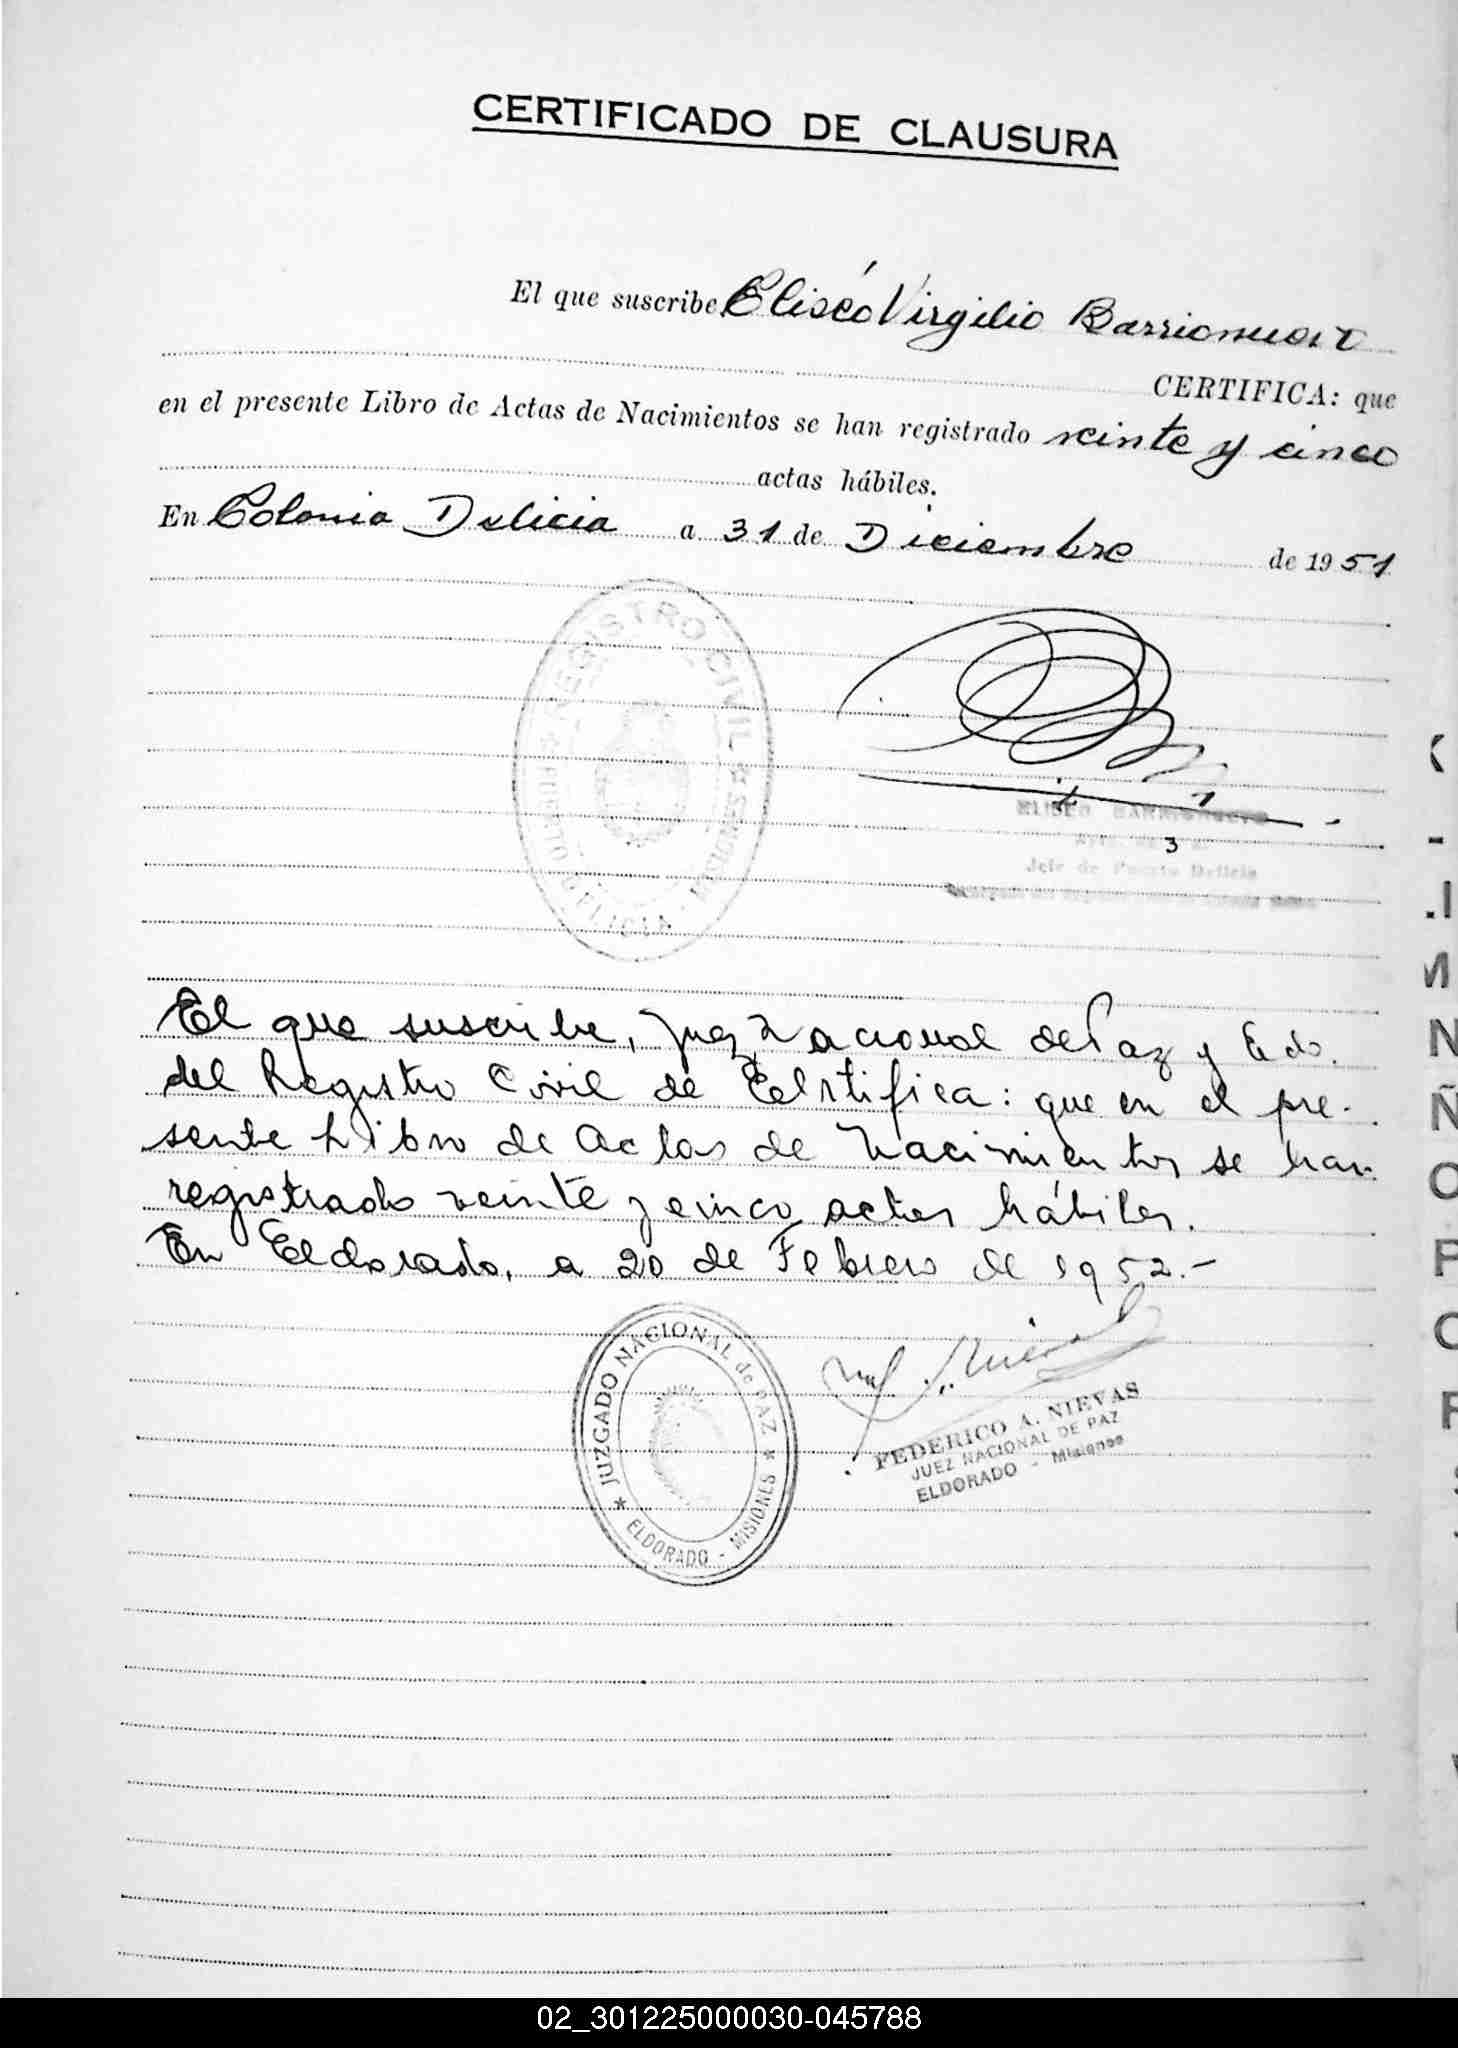 CERTIFICADO DE CLAUSURA
El que suscribe Eliséo Virgilio Barrionuevo
CERTIFICA: que
en el presente Libro de Actas de Nacimientos se han registrado veinte y cinco
actas hábiles.
En Colonia Delicia a 31 de Diciembre de 1951
REGISTRO CIVIL
PUERTO DELICIA - MISIONES
ELISEO BARRIONUEVO
Jefe de Puerto Delicia
El que suscribe, Juez Nacional de Paz y Edo.
del Registro Civil de Celrtifica: que en el pre-
sente Libro de Actas de Nacimientos se han
registrado veinte y cinco actas hábiles.
En Eldorado, a 20 de Febrero de 1952.-
JUZGADO NACIONAL de PAZ
ELDORADO - MISIONES
FEDERICO A. NIEVAS
JUEZ NACIONAL DE PAZ
ELDORADO - Misiones
02_301225000030-045788